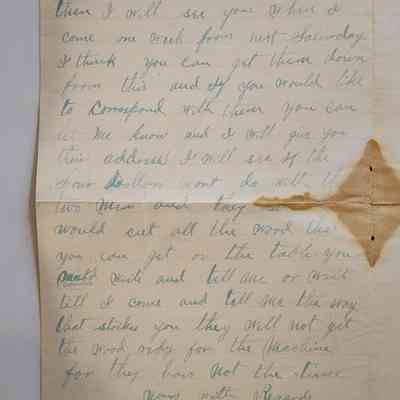 then I will see you when I
come one week from next Saturday
I think you can get them down
from this and if you would like
to Correspond with them you can
let me know and I will give you
their address I will see if the
four dollars wont do with the
two men and they
would cut all the wood that
you can get on the table you
write and tell me or wait
till I come and tell me the way
that strikes you they will not get
the wood redy for the Machine
for they have not the time
Yours with Regards